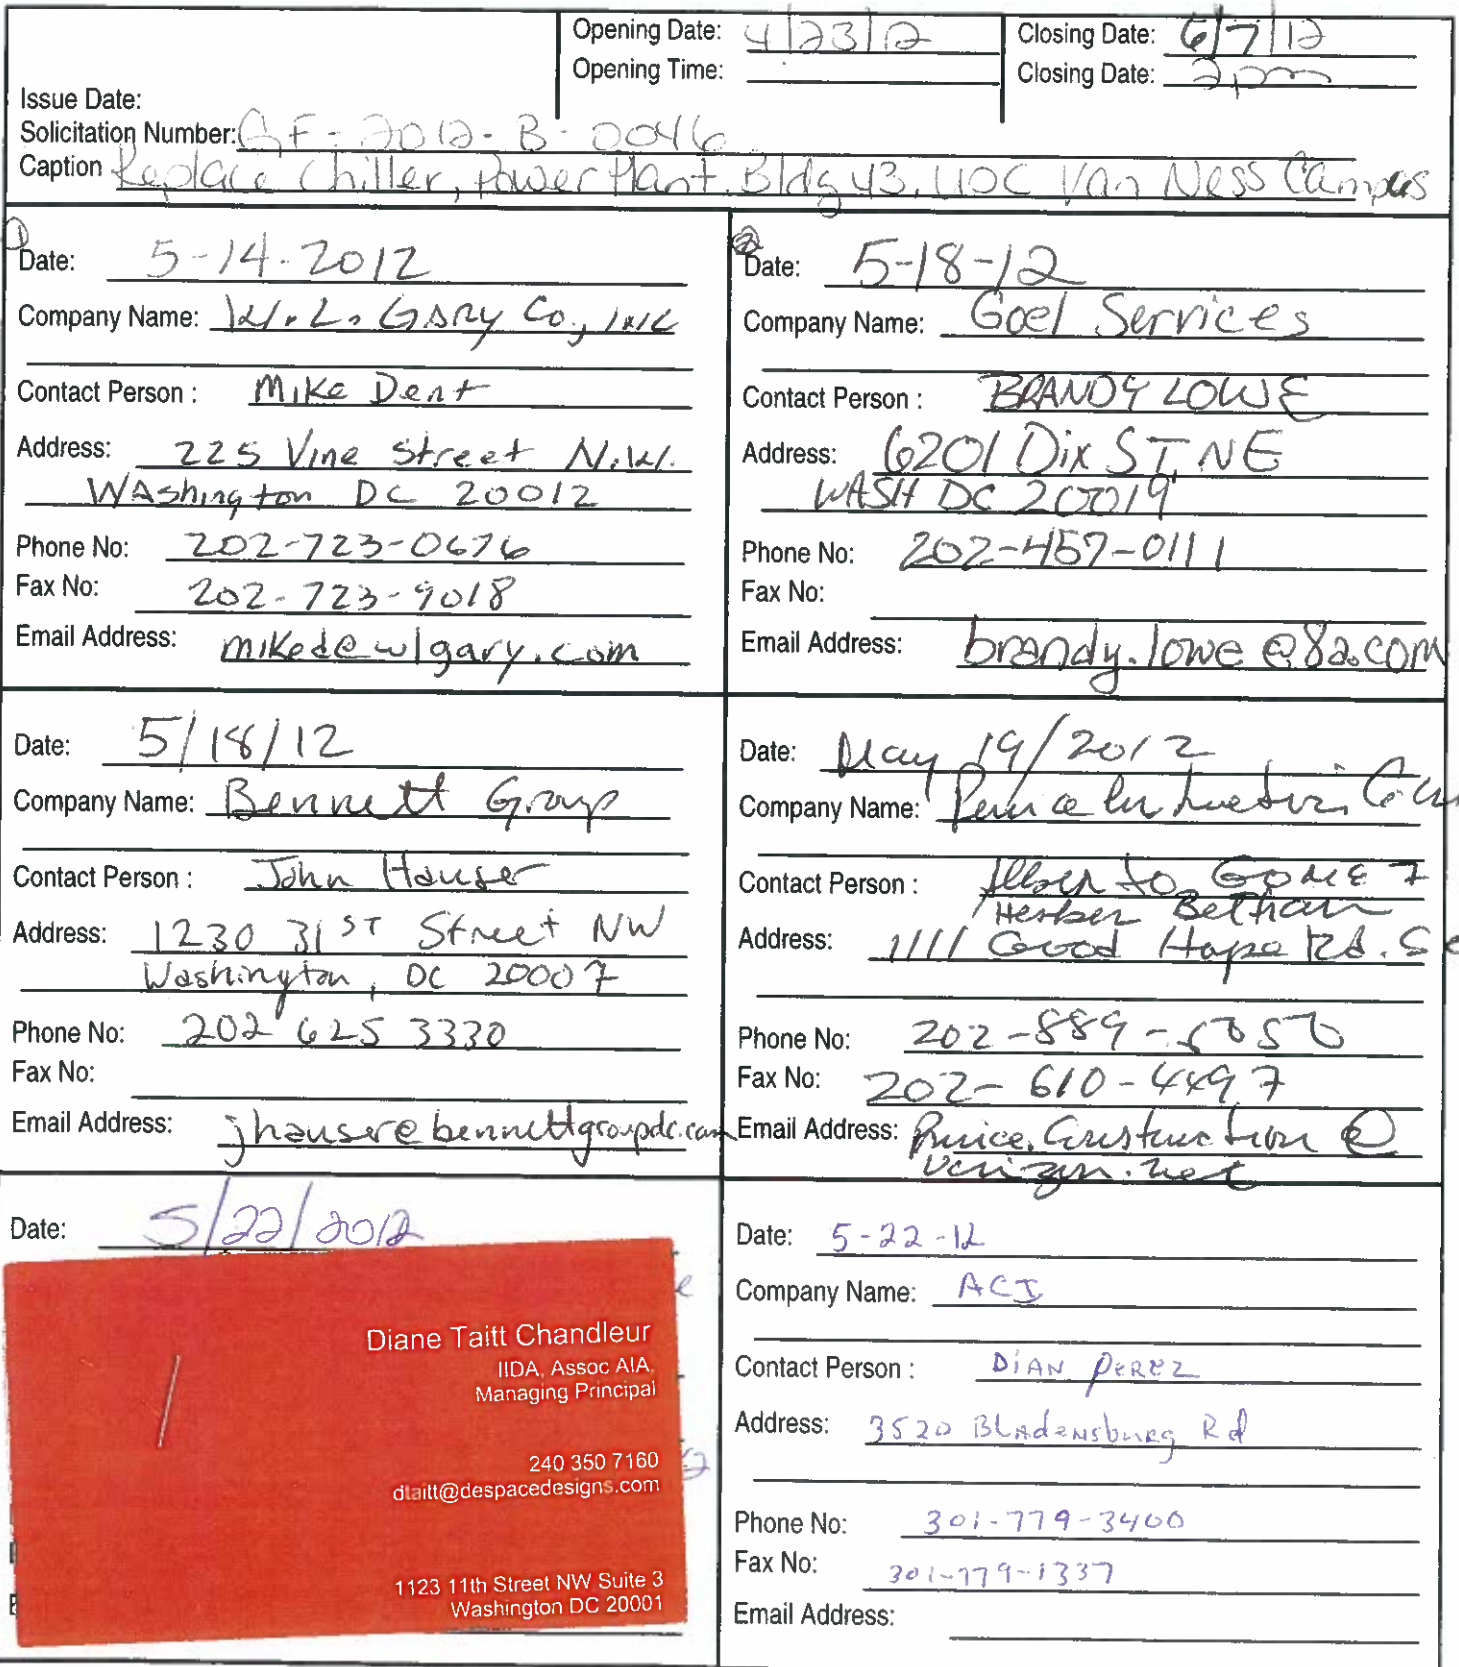 Opening Date: 4/23/12
Closing Date: 6/7/12
Opening Time:
Closing Date: 2pm
Issue Date:
Solicitation Number: GF-2012-B-0046
Caption Replace Chiller, Power Plant. Bldg 43, UDC Van Ness Campus
1
Date: 5-14-2012
Company Name: W.L. Gary Co., Inc
Contact Person : Mike Dent
Address: 225 Vine Street N.W.
Washington DC 20012
Phone No: 202-723-0676
Fax No: 202-723-9018
Email Address: miked@wlgary.com
2
Date: 5-18-12
Company Name: Goel Services
Contact Person : BRANDY LOWE
Address: 6201 Dix ST NE
WASH DC 20019
Phone No: 202-457-0111
Fax No:
Email Address: brandy.lowe@8a.com
Date: 5/18/12
Company Name: Bennett Group
Contact Person : John Hauser
Address: 1230 31ST Street NW
Washington, DC 20007
Phone No: 202 625 3330
Fax No:
Email Address: jhauser@bennettgroupdc.com
Date: May 19/2012
Company Name:
Contact Person : Alberto GOMEZ
Herber Beltran
Address: 1111 Good Hope Rd. Se
Phone No: 202-889-
Fax No: 202-610-4497
Email Address: Construction @
verizon.net
Date: 5/22/2012
Diane Taitt Chandleur
IIDA, Assoc AIA,
Managing Principal
240 350 7160
dtaitt@despacedesigns.com
1123 11th Street NW Suite 3
Washington DC 20001
Date: 5-22-12
Company Name: ACI
Contact Person : DiAN PEREZ
Address: 3520 Bladensburg Rd
Phone No: 301-779-3400
Fax No: 301-779-1337
Email Address: